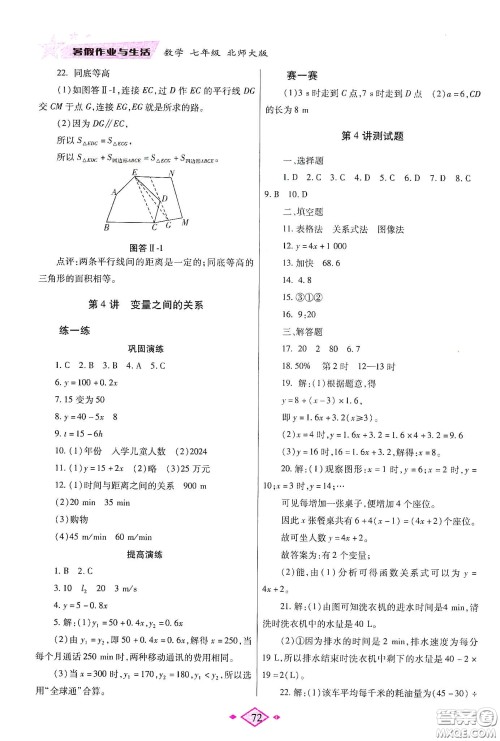 暑假作业与生活 数学 七年级 北师大版
22. 同底等高
(1)如图答Ⅱ-1,连接EC,过D作EC的平行线DG
交CM于点G,连接EG,EG就是所求的路。
(2)因为DG∥EC,
所以S△EDC=S△ECG,
所以S△EDC+S四边形ABCE=S△ECG+S四边形ABCE
E N
A D
B C G M
图答Ⅱ-1
点评:两条平行线间的距离是一定的;同底等高的
三角形的面积相等。
第4讲 变量之间的关系
练一练
巩固演练
1. C 2. B 3. B 4. C 5. A
6. y=100+0.2x
7. 15变为50
8. y=40-5x 8
9. t=15-6h
10. (1)年份 入学儿童人数 (2)2024
11. (1)y=15+2x (2)略 (3)25万元
12. (1)时间与距离之间的关系 900 m
(2)20 min 35 min
(3)购物
(4)45 m/min 60 m/min
提高演练
1. B 2. C
3. 10 l₂ 20 3
4. y=5-0.8x
5. 解:(1)y₁=50+0.4x,y₂=0.6x
(2)由y₁=y₂,即50+0.4x=0.6x,得x=250,当
每个月通话250 min时,两种移动通讯的费用相同。
(3)当x=300时,y₁=170,y₂=180,y₁<y₂,所以选
用“全球通”合算。
赛一赛
(1)3 s时走到C点,7 s时走到D点 (2)a=6,CD
的长为8 m
第4讲测试题
一、选择题
1. D 2. C 3. B 4. C 5. D 6. C 7. D 8. C
9. B 10. D
二、填空题
11. 表格法 关系式法 图像法
12. y=4x+1 000
13. 加快 68.6
14. 4.8
15. ③①②
16. 9:20
三、解答题
17. 20 2 80 6.0
18. 50% 第2时 12—13时
19. 解:(1)根据题意,得
y=8+(x-3)×1.6,
即y=1.6x+3.2(x≥3)。
(2)令y=16,则16=1.6x+3.2,解得:x=8。
20. 解:(1)观察图形:x=1时,y=6,x=2时,y=
10;x=3时,y=14;…
可见每增加一张桌子,便增加4个座位。
因此x张餐桌共有6+4(x-1)=4x+2个座位。
故可坐人数y=4x+2。
故答案为:有2个变量;
(2)能,由(1)分析可得函数关系式可以写成y=
4x+2。
21. 解:(1)由图可知洗衣机的进水时间是4 min,清
洗时洗衣机中的水量是40 L。
(2)①因为排水时间为2 min,排水速度为每分
19 L,所以排水结束时洗衣机中剩下的水量是40-2×
19=2(L)。
22. 解:(1)该车平均每千米的耗油量为(45-30)÷
72